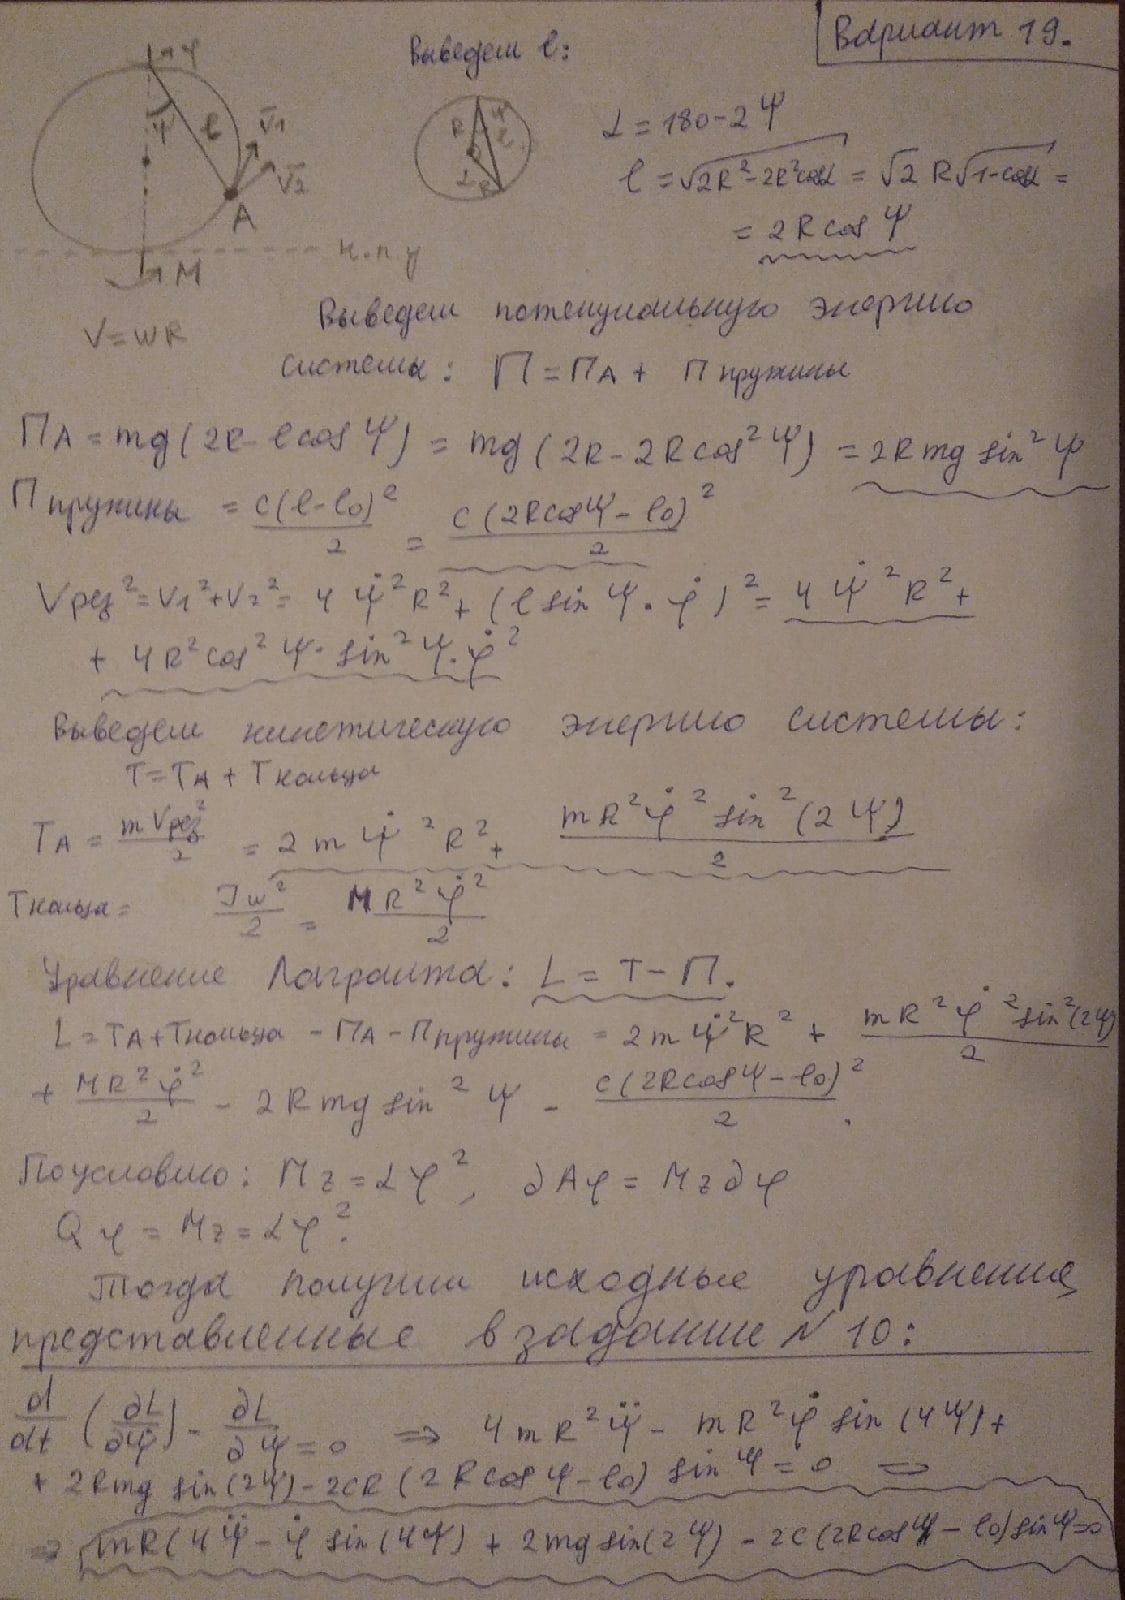 Вариант 19.
Выведем l:
φ
ψ
l
V̅1
V̅2
A
н.п.у
M
V=WR
R
ψ
l
α
R
α = 180-2ψ
l = √2R²-2R²cosα = √2 R√1-cosα =
= 2R cos ψ
Выведем потенциальную энергию
системы: П = ПA + П пружины
ПA = mg(2R-lcosψ) = mg(2R-2Rcos²ψ) = 2Rmg sin²ψ
П пружины = c(l-l0)²/2 = c(2Rcosψ-l0)²/2
Vрез² = V1²+V2² = 4ψ̇²R² + (l sinψ·φ̇)² = 4ψ̇²R² +
+ 4R²cos²ψ·sin²ψ·φ̇²
Выведем кинетическую энергию системы:
T = TA + T кольца
TA = mVрез²/2 = 2mψ̇²R² + mR²φ̇²sin²(2ψ)/2
Tкольца = Jw²/2 = MR²φ̇²/2
Уравнение Лагранжа: L = T-П.
L = TA+Tкольца - ПA - Ппружины = 2mψ̇²R² + mR²φ̇²sin²(2ψ)/2
+ MR²φ̇²/2 - 2Rmg sin²ψ - c(2Rcosψ-l0)²/2.
По условию: Mz = αφ², ∂Aφ = Mz∂φ
Qφ = Mz = αφ².
Тогда получим исходные уравнения,
представленные в задание N 10:
d/dt (∂L/∂ψ̇) - ∂L/∂ψ = 0 ⇒ 4mR²ψ̈ - mR²φ̇ sin(4ψ) +
+ 2Rmg sin(2ψ) - 2cR(2Rcosψ-l0) sinψ = 0 ⇒
⇒ mR(4ψ̈ - φ̇ sin(4ψ) + 2mg sin(2ψ) - 2c(2Rcosψ-l0)sinψ=0